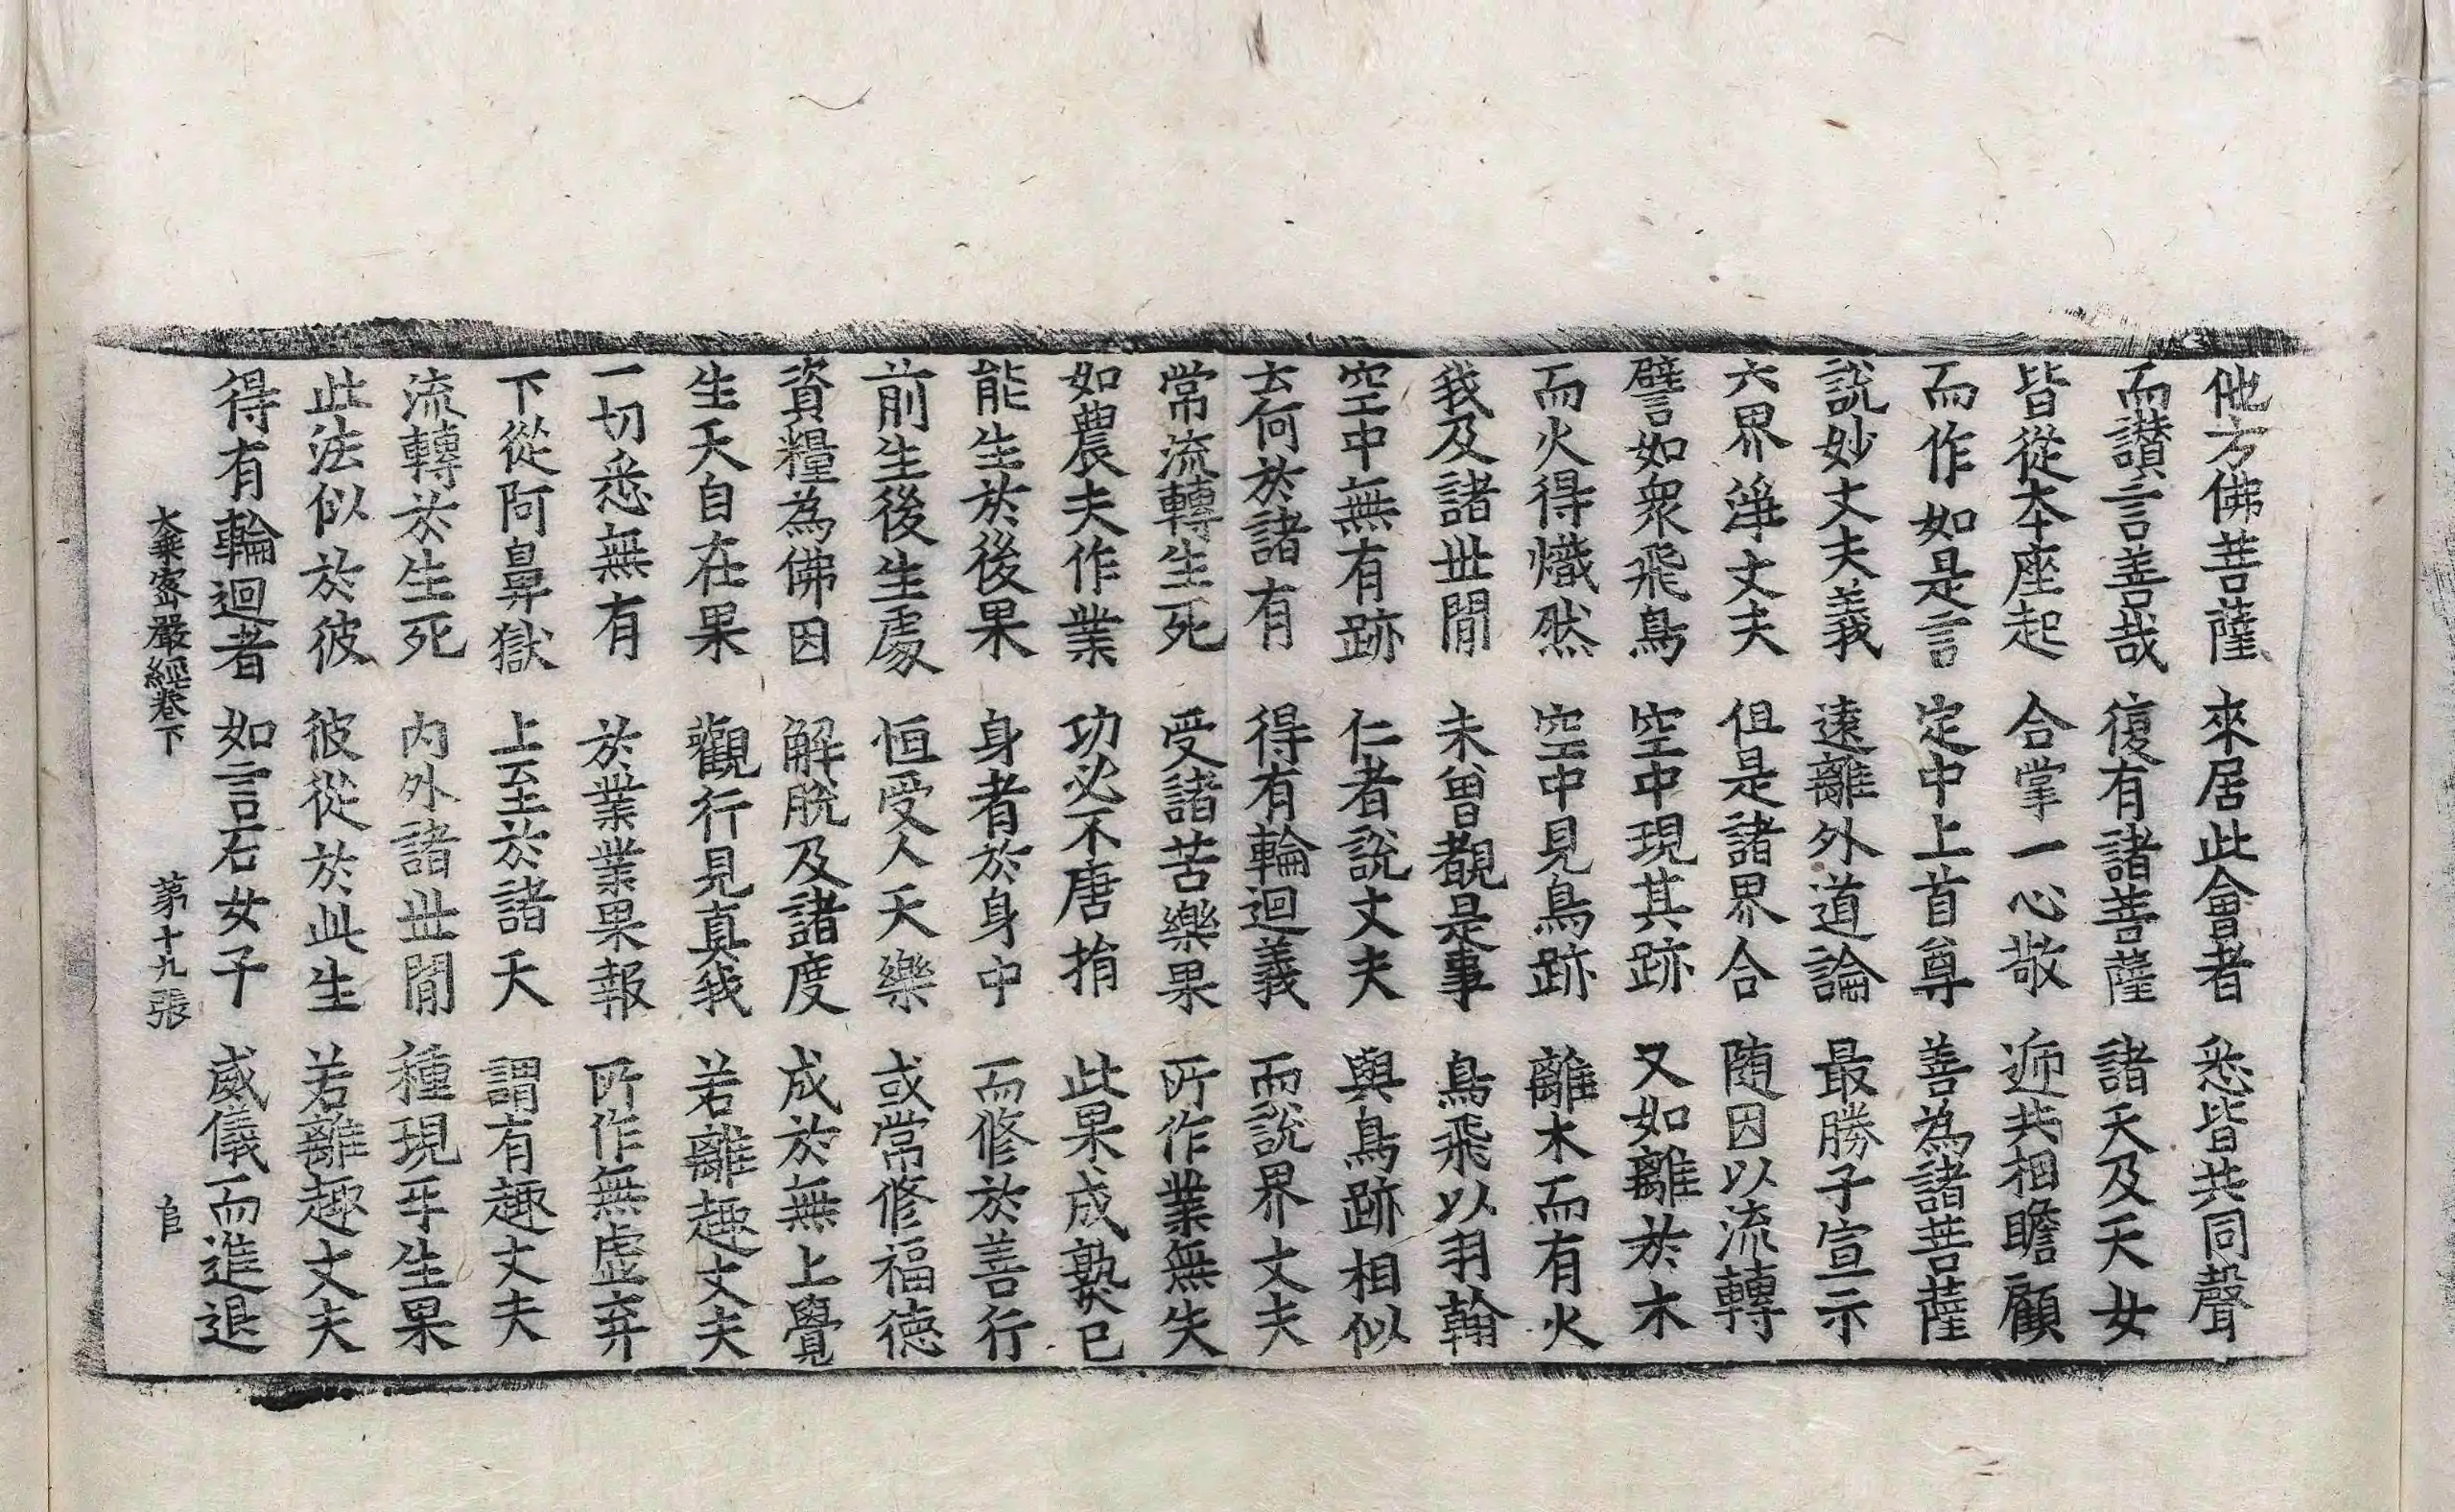 他方佛菩薩 來居此會者 悉皆共同聲
而讃言善哉 復有諸菩薩 諸天及天女
皆從本座起 合掌一心敬 逓共相瞻顧
而作如是言 定中上首尊 善為諸菩薩
說妙丈夫義 遠離外道論 最勝子宣示
六界淨丈夫 但是諸界合 随因以流轉
譬如衆飛鳥 空中現其跡 又如離於木
而火得熾然 空中見鳥跡 離木而有火
我及諸世間 未曾覩是事 鳥飛以羽翰
空中無有跡 仁者說丈夫 與鳥跡相似
云何於諸有 得有輪迴義 而說界丈夫
常流轉生死 受諸苦樂果 所作業無失
如農夫作業 功必不唐捐 此果成熟已
能生於後果 身者於身中 而修於善行
前生後生處 恒受人天樂 或常修福徳
資糧為佛因 解脫及諸度 成於無上覺
生天自在果 觀行見真我 若離趣丈夫
一切悉無有 於業業果報 所作無虛弃
下從阿鼻獄 上至於諸天 謂有趣丈夫
流轉於生死 内外諸世間 種現牙生果
此法似於彼 彼從於此生 若離趣丈夫
得有輪迴者 如言石女子 威儀而進退
大乗密嚴經卷下 苐十九張